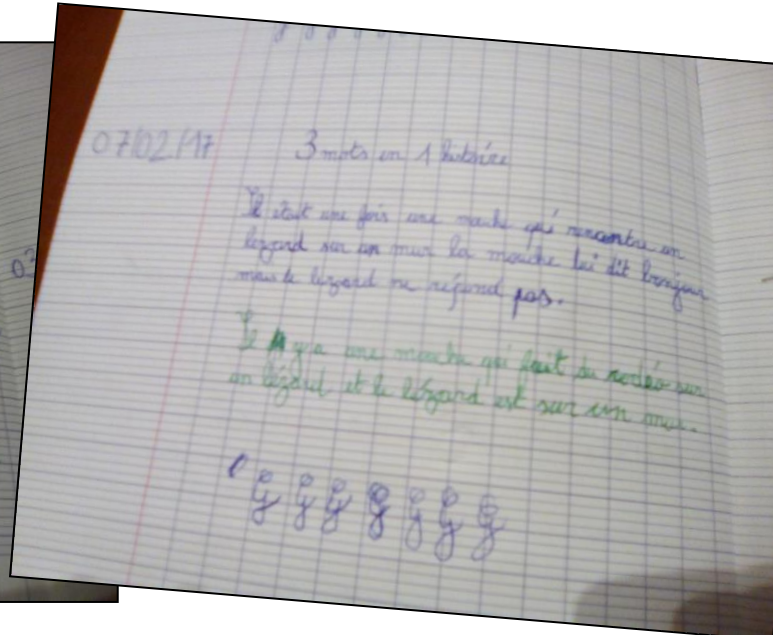 07/02/17
3 mots en 1 histoire
Il était une fois une mouche qui rencontre un
lézard sur un mur la mouche lui dit bonjour
mais le lézard ne répond pas.
Il y a une mouche qui fait du rodéo sur
un lézard et le lézard est sur un mur.